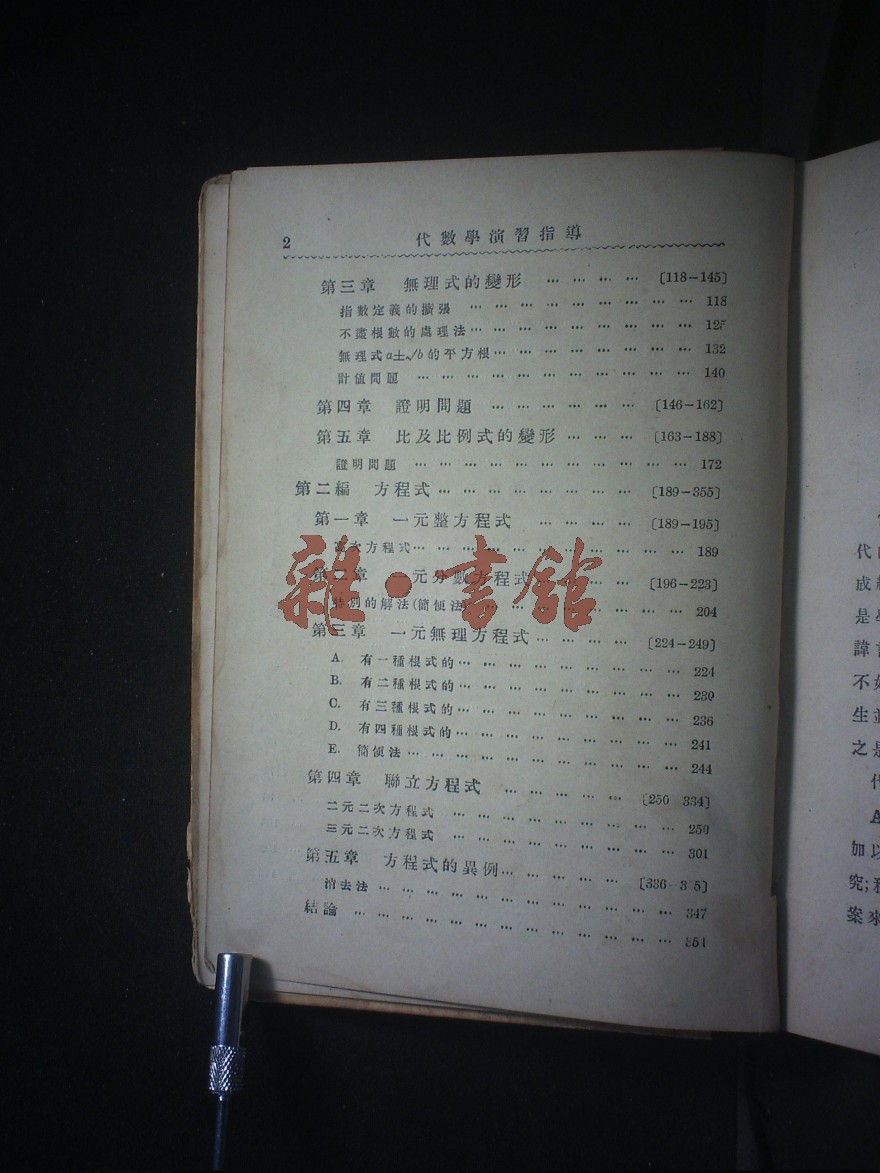 2 代數學演習指導
第三章 無理式的變形 … … … … 〔118－145〕
指數定義的擴張 … … … … … … … … … 118
不盡根數的處理法… … … … … … … … … 125
無理式a±√b的平方根… … … … … … … … 132
計值問題 … … … … … … … … … … … 140
第四章 證明問題 … … … … … … 〔146－162〕
第五章 比及比例式的變形 … … … 〔163－188〕
證明問題 … … … … … … … … … … … 172
第二編 方程式… … … … … … … … 〔189－355〕
第一章 一元整方程式 … … … … 〔189－195〕
高次方程式… … … … … … … … … … … 189
第二章 一元分數方程式… … … … 〔196－223〕
特別的解法(簡便法)… … … … … … … … … 204
第三章 一元無理方程式… … … … 〔224－249〕
A. 有一種根式的… … … … … … … … … 224
B. 有二種根式的… … … … … … … … … 230
C. 有三種根式的… … … … … … … … … 236
D. 有四種根式的… … … … … … … … … 241
E. 簡便法… … … … … … … … … … … 244
第四章 聯立方程式 … … … … … 〔250 334〕
二元二次方程式 … … … … … … … … … 250
三元二次方程式 … … … … … … … … … 301
第五章 方程式的異例… … … … … 〔336
消去法 … … … … … … … … … … … … 347
結論 … … … … … … … … … … … … …
雜·書館
代
成
是
諱
不
生並
之是
代
A
加以
究;
案來